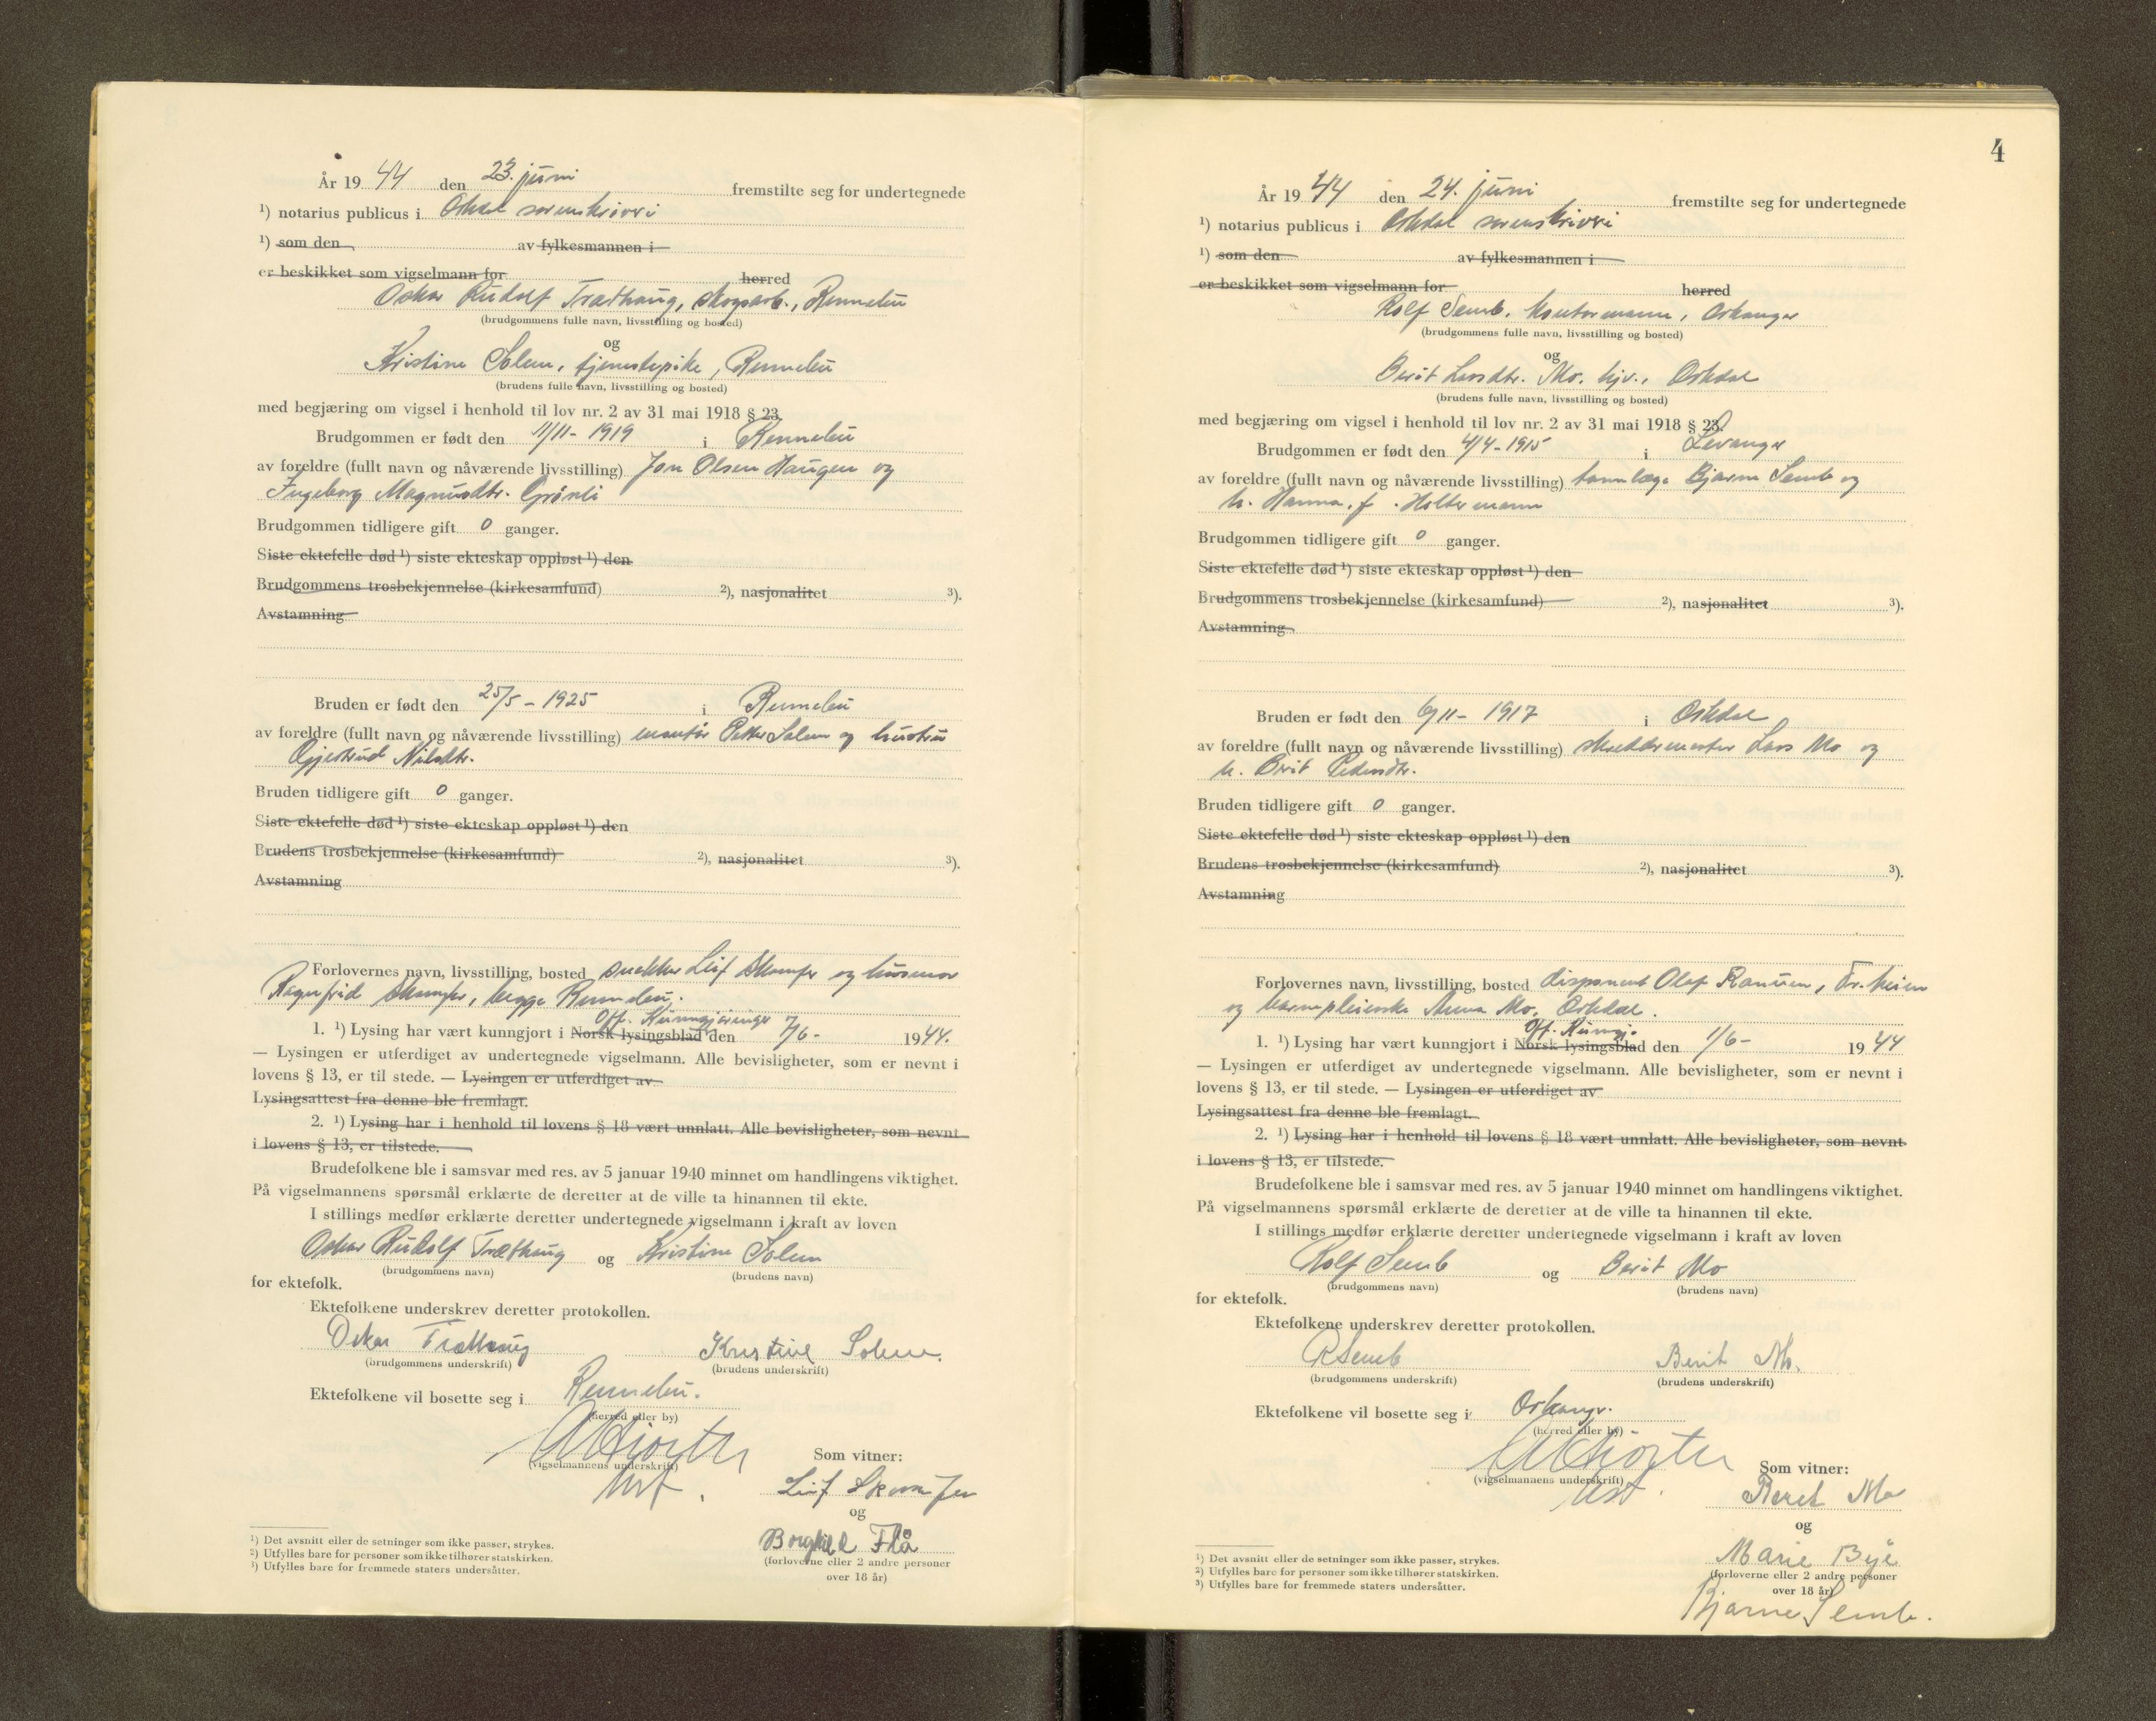 År 1944 den 23. juni fremstilte seg for undertegnede
¹) notarius publicus i Orkdal sorenskriveri
¹) som den av fylkesmannen i
er beskikket som vigselmann for herred
Oskar Rudolf Træthaug, skogsarb., Rennebu
(brudgommens fulle navn, livsstilling og bosted)
og
Kristine Solem, tjenestepike, Rennebu
(brudens fulle navn, livsstilling og bosted)
med begjæring om vigsel i henhold til lov nr. 2 av 31 mai 1918 § 23.
Brudgommen er født den 11/11- 1919 i Rennebu
av foreldre (fullt navn og nåværende livsstilling) Jon Olsen Haugen og
Ingeborg Magnusdtr. Grønli
Brudgommen tidligere gift 0 ganger.
Siste ektefelle død ¹) siste ekteskap oppløst ¹) den
Brudgommens trosbekjennelse (kirkesamfund) ²), nasjonalitet ³).
Avstamning
Bruden er født den 25/5 - 1925 i Rennebu
av foreldre (fullt navn og nåværende livsstilling) Petter Solem og hustru
Gjertrud Nilsdtr.
Bruden tidligere gift 0 ganger.
Siste ektefelle død ¹) siste ekteskap oppløst ¹) den
Brudens trosbekjennelse (kirkesamfund) ²), nasjonalitet ³).
Avstamning
Forlovernes navn, livsstilling, bosted snekker Leif Skamfer og husmor
Ragnfrid Skamfer, begge Rennebu.
Off. Kunngjøringer
1. ¹) Lysing har vært kunngjort i Norsk lysingsblad den 7/6 - 1944.
— Lysingen er utferdiget av undertegnede vigselmann. Alle bevisligheter, som er nevnt i
lovens § 13, er til stede. — Lysingen er utferdiget av
Lysingsattest fra denne ble fremlagt.
2. ¹) Lysing har i henhold til lovens § 18 vært unnlatt. Alle bevisligheter, som nevnt
i lovens § 13, er tilstede.
Brudefolkene ble i samsvar med res. av 5 januar 1940 minnet om handlingens viktighet.
På vigselmannens spørsmål erklærte de deretter at de ville ta hinannen til ekte.
I stillings medfør erklærte deretter undertegnede vigselmann i kraft av loven
Oskar Rudolf Træthaug og Kristine Solem
(brudgommens navn) (brudens navn)
for ektefolk.
Ektefolkene underskrev deretter protokollen.
Oskar Træthaug Kristine Solem.
(brudgommens underskrift) (brudens underskrift)
Ektefolkene vil bosette seg i Rennebu.
(herred eller by)
(vigselmannens underskrift) Som vitner:
Leif Skamfer
og
Borghild Flå
(forloverne eller 2 andre personer
over 18 år)
¹) Det avsnitt eller de setninger som ikke passer, strykes.
²) Utfylles bare for personer som ikke tilhører statskirken.
³) Utfylles bare for fremmede staters undersåtter.
4
År 1944 den 24. juni fremstilte seg for undertegnede
¹) notarius publicus i Orkdal sorenskriveri
¹) som den av fylkesmannen i
er beskikket som vigselmann for herred
Rolf Semb, kontormann, Orkanger
(brudgommens fulle navn, livsstilling og bosted)
og
Berit Larsdtr. Mo, hjv., Orkdal
(brudens fulle navn, livsstilling og bosted)
med begjæring om vigsel i henhold til lov nr. 2 av 31 mai 1918 § 23.
Brudgommen er født den 4/4-1915 i Levanger
av foreldre (fullt navn og nåværende livsstilling) tannlæge Bjarne Semb og
h. Hanna, f. Holtermann
Brudgommen tidligere gift 0 ganger.
Siste ektefelle død ¹) siste ekteskap oppløst ¹) den
Brudgommens trosbekjennelse (kirkesamfund) ²), nasjonalitet ³).
Avstamning
Bruden er født den 6/11- 1917 i Orkdal
av foreldre (fullt navn og nåværende livsstilling) skreddermester Lars Mo og
h. Berit Pedersdtr.
Bruden tidligere gift 0 ganger.
Siste ektefelle død ¹) siste ekteskap oppløst ¹) den
Brudens trosbekjennelse (kirkesamfund) ²), nasjonalitet ³).
Avstamning
Forlovernes navn, livsstilling, bosted disponent Olaf Ranum, Tr.heim
og barnepleierske Anna Mo, Orkdal.
Off. Kungj.
1. ¹) Lysing har vært kunngjort i Norsk lysingsblad den 1/6- 1944
— Lysingen er utferdiget av undertegnede vigselmann. Alle bevisligheter, som er nevnt i
lovens § 13, er til stede. — Lysingen er utferdiget av
Lysingsattest fra denne ble fremlagt.
2. ¹) Lysing har i henhold til lovens § 18 vært unnlatt. Alle bevisligheter, som nevnt
i lovens § 13, er tilstede.
Brudefolkene ble i samsvar med res. av 5 januar 1940 minnet om handlingens viktighet.
På vigselmannens spørsmål erklærte de deretter at de ville ta hinannen til ekte.
I stillings medfør erklærte deretter undertegnede vigselmann i kraft av loven
Rolf Semb og Berit Mo
(brudgommens navn) (brudens navn)
for ektefolk.
Ektefolkene underskrev deretter protokollen.
RSemb Berit Mo.
(brudgommens underskrift) (brudens underskrift)
Ektefolkene vil bosette seg i Orkanger.
(herred eller by)
(vigselmannens underskrift) Som vitner:
Beret Mo
og
Marie Bye
(forloverne eller 2 andre personer
over 18 år)
Bjarne Semb.
¹) Det avsnitt eller de setninger som ikke passer, strykes.
²) Utfylles bare for personer som ikke tilhører statskirken.
³) Utfylles bare for fremmede staters undersåtter.